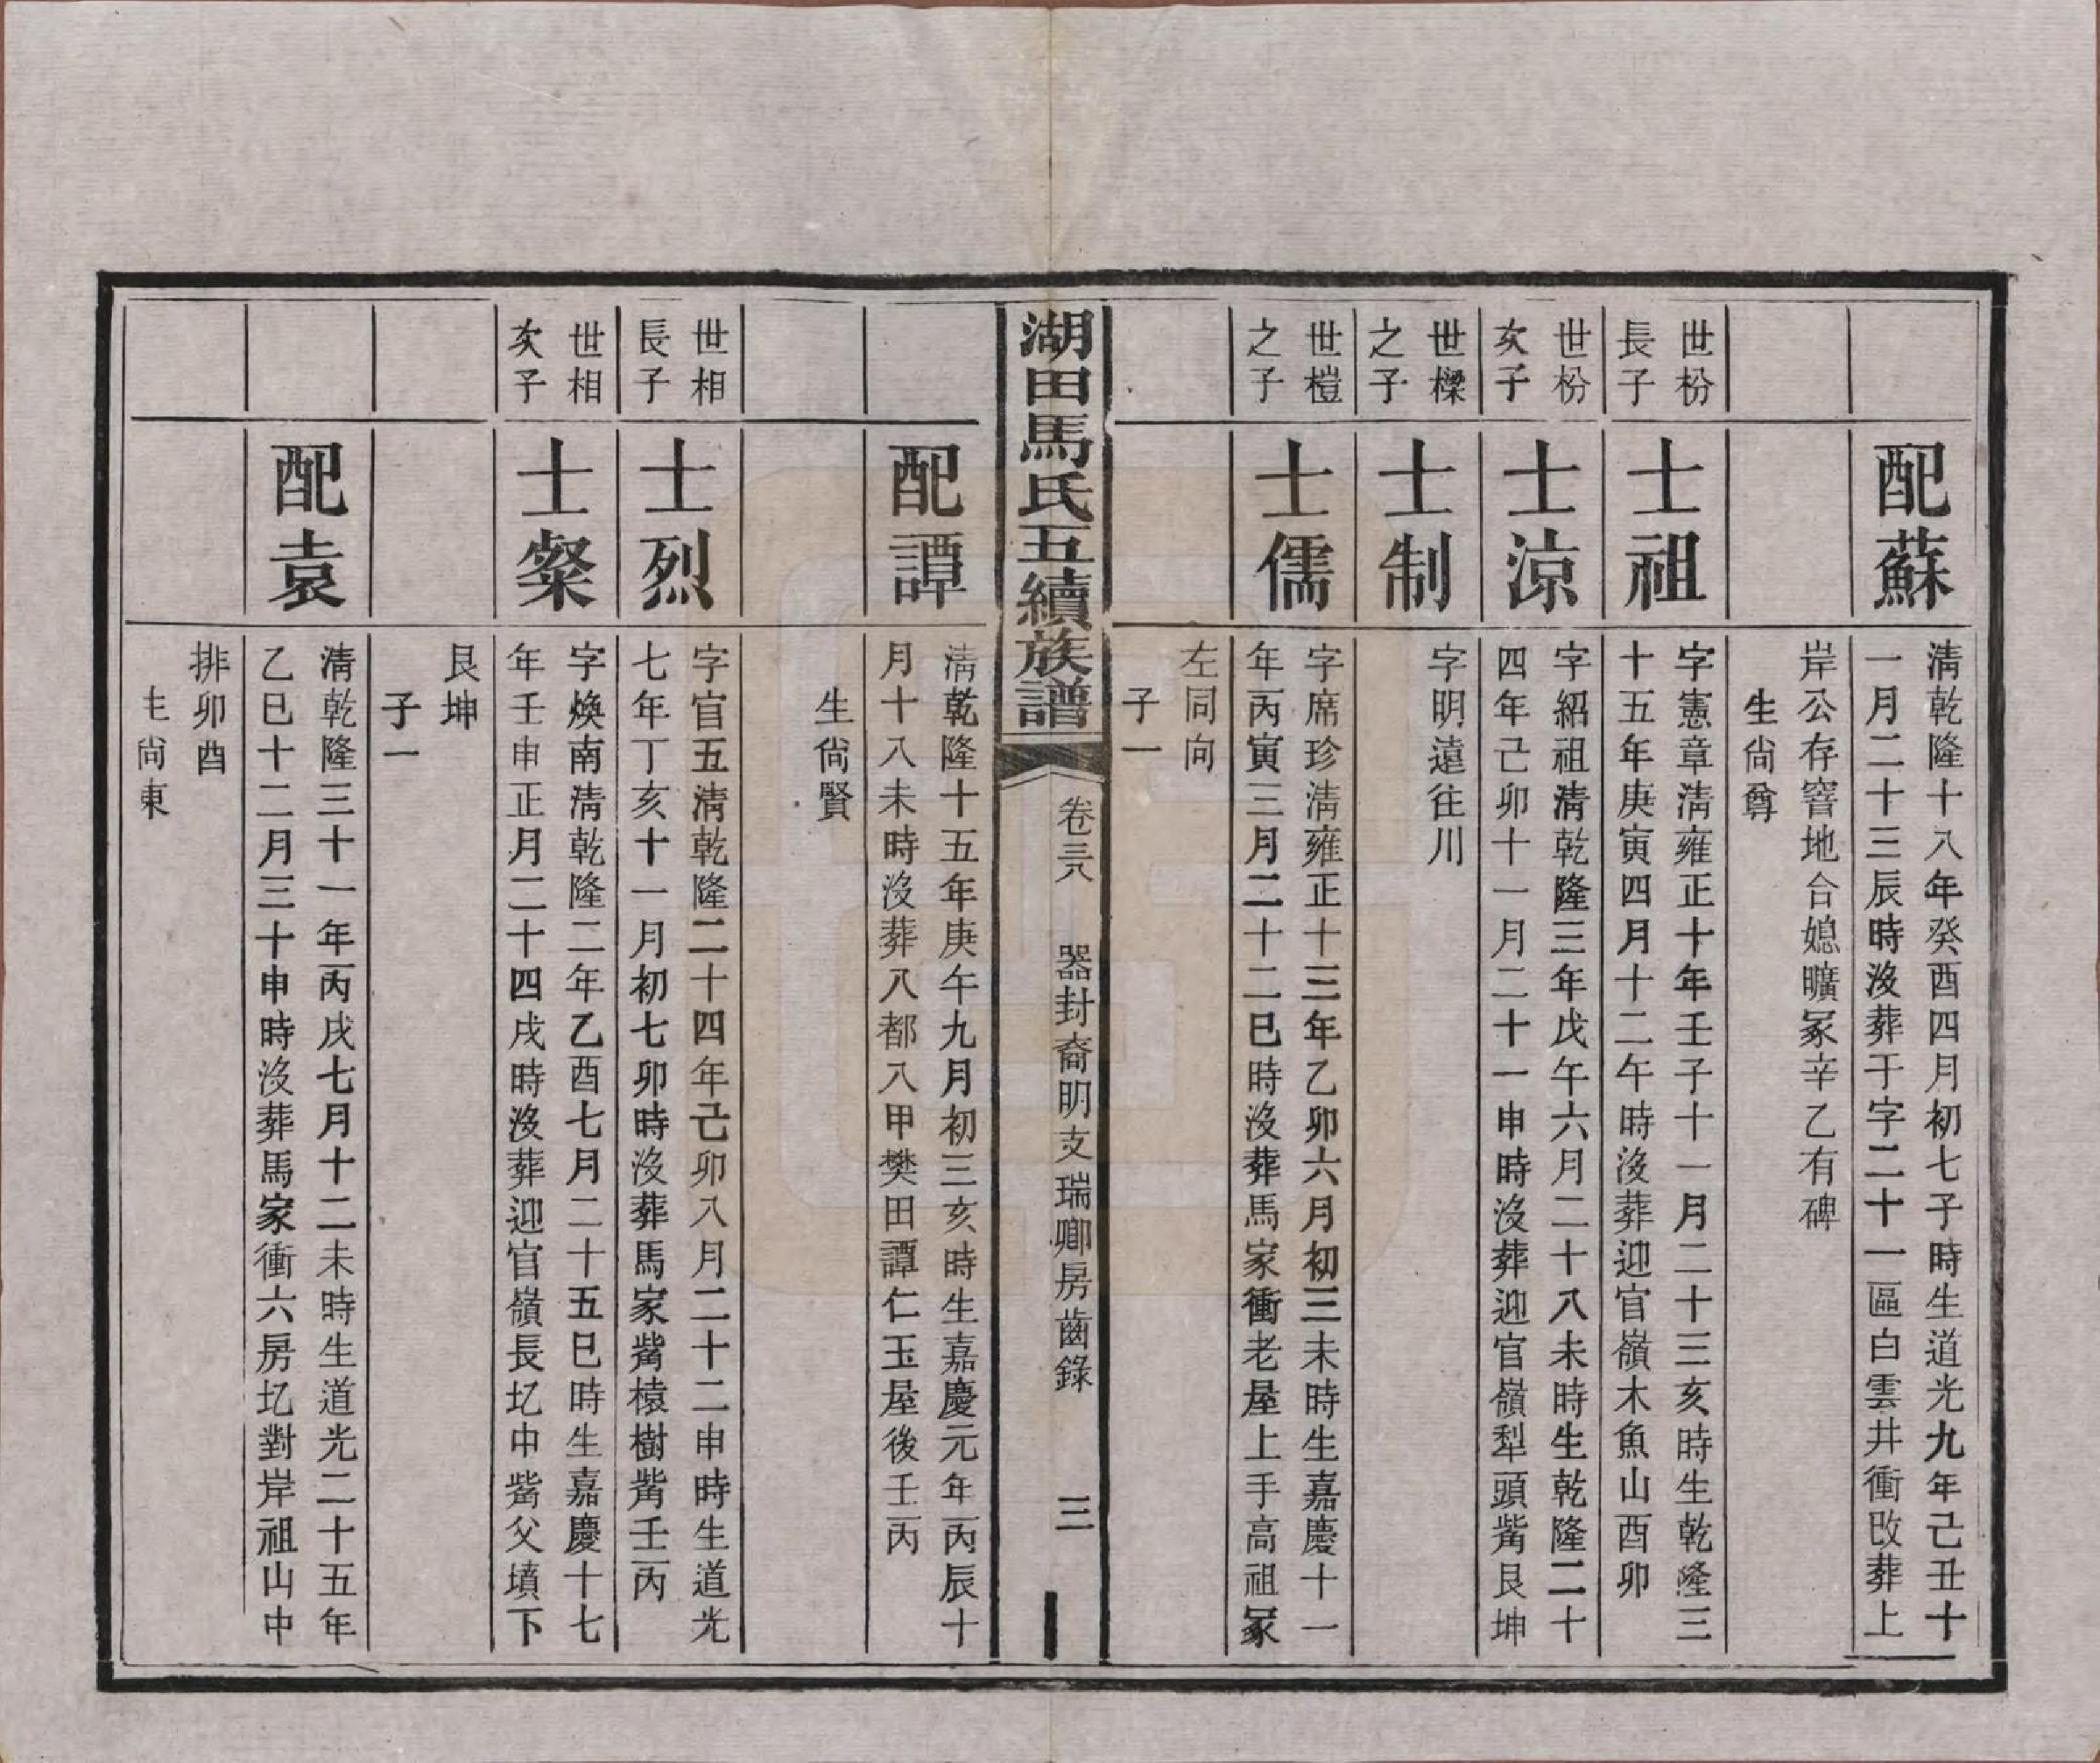 配蘇
清乾隆十八年癸酉四月初七子時生道光九年己丑十
一月二十三辰時沒葬于字二十一區白雲井衝改葬上
岸公存窖地合媳曠冢辛乙有碑
生尙尊
世枌
長子
士祖
字憲章清雍正十年壬子十一月二十三亥時生乾隆三
十五年庚寅四月十二午時沒葬迎官嶺木魚山酉卯
世枌
次子
士涼
字紹祖清乾隆三年戊午六月二十八未時生乾隆二十
四年己卯十一月二十一申時沒葬迎官嶺犁頭觜艮坤
世樑
之子
士制
字明遠往川
世榿
之子
士儒
字席珍清雍正十三年乙卯六月初三未時生嘉慶十一
年丙寅三月二十二巳時沒葬馬家衝老屋上手高祖冢
左同向
子一
湖田馬氏五續族譜
卷三八
器封裔明支瑞卿房齒錄
三
配譚
清乾隆十五年庚午九月初三亥時生嘉慶元年丙辰十
月十八未時沒葬八都八甲樊田譚仁玉屋後壬丙
生尙賢
世相
長子
士烈
字官五清乾隆二十四年己卯八月二十二申時生道光
七年丁亥十一月初七卯時沒葬馬家觜榬樹觜壬丙
世相
次子
士粲
字煥南清乾隆二年乙酉七月二十五巳時生嘉慶十七
年壬申正月二十四戌時沒葬迎官嶺長圪中觜父墳下
艮坤
子一
配袁
清乾隆三十一年丙戌七月十二未時生道光二十五年
乙巳十二月三十申時沒葬馬家衝六房圪對岸祖山中
排卯酉
生尙東